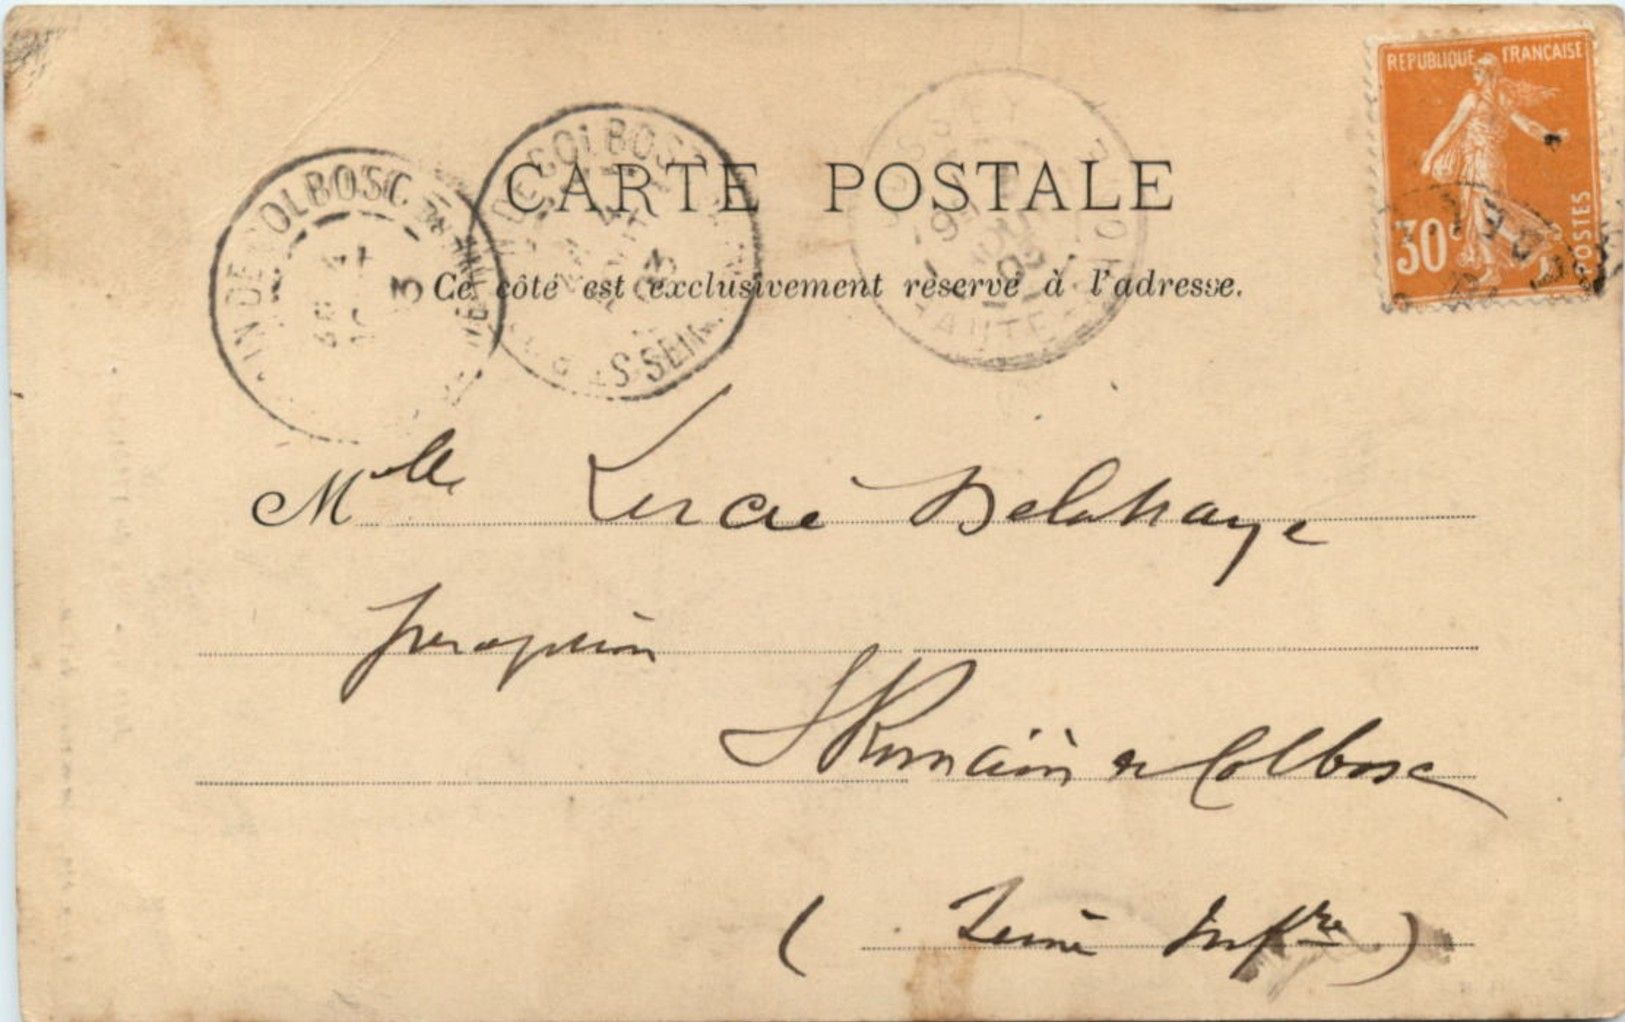 REPUBLIQUE FRANCAISE
30c
POSTES
CARTE POSTALE
Ce côté est exclusivement réservé à l'adresse.
IN DE COLBOSC
4
3
DE COLBOSC
HAUTE
Mlle Lucie Delahaye
perception
St Romain de Colbosc
( Seine Infre )